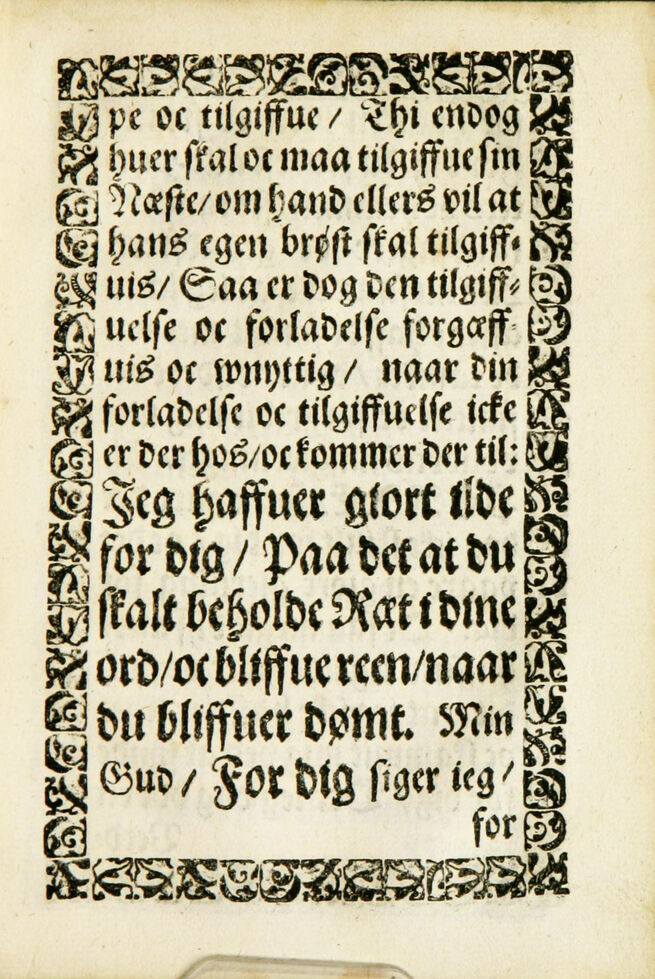 pe oc tilgiffue / Thi endog
huer skal oc maa tilgiffue sin
Næste / om hand ellers vil at
hans egen brøst skal tilgiff⸗
uis / Saa er dog den tilgiff⸗
uelse oc forladelse forgæff⸗
uis oc wnyttig / naar din
forladelse oc tilgiffuelse icke
er der hos / oc kommer der til:
Jeg haffuer giort ilde
for dig / Paa det at du
skalt beholde Ræt i dine
ord / oc bliffue reen / naar
du bliffuer dømt. Min
Gud / For dig siger ieg /
for